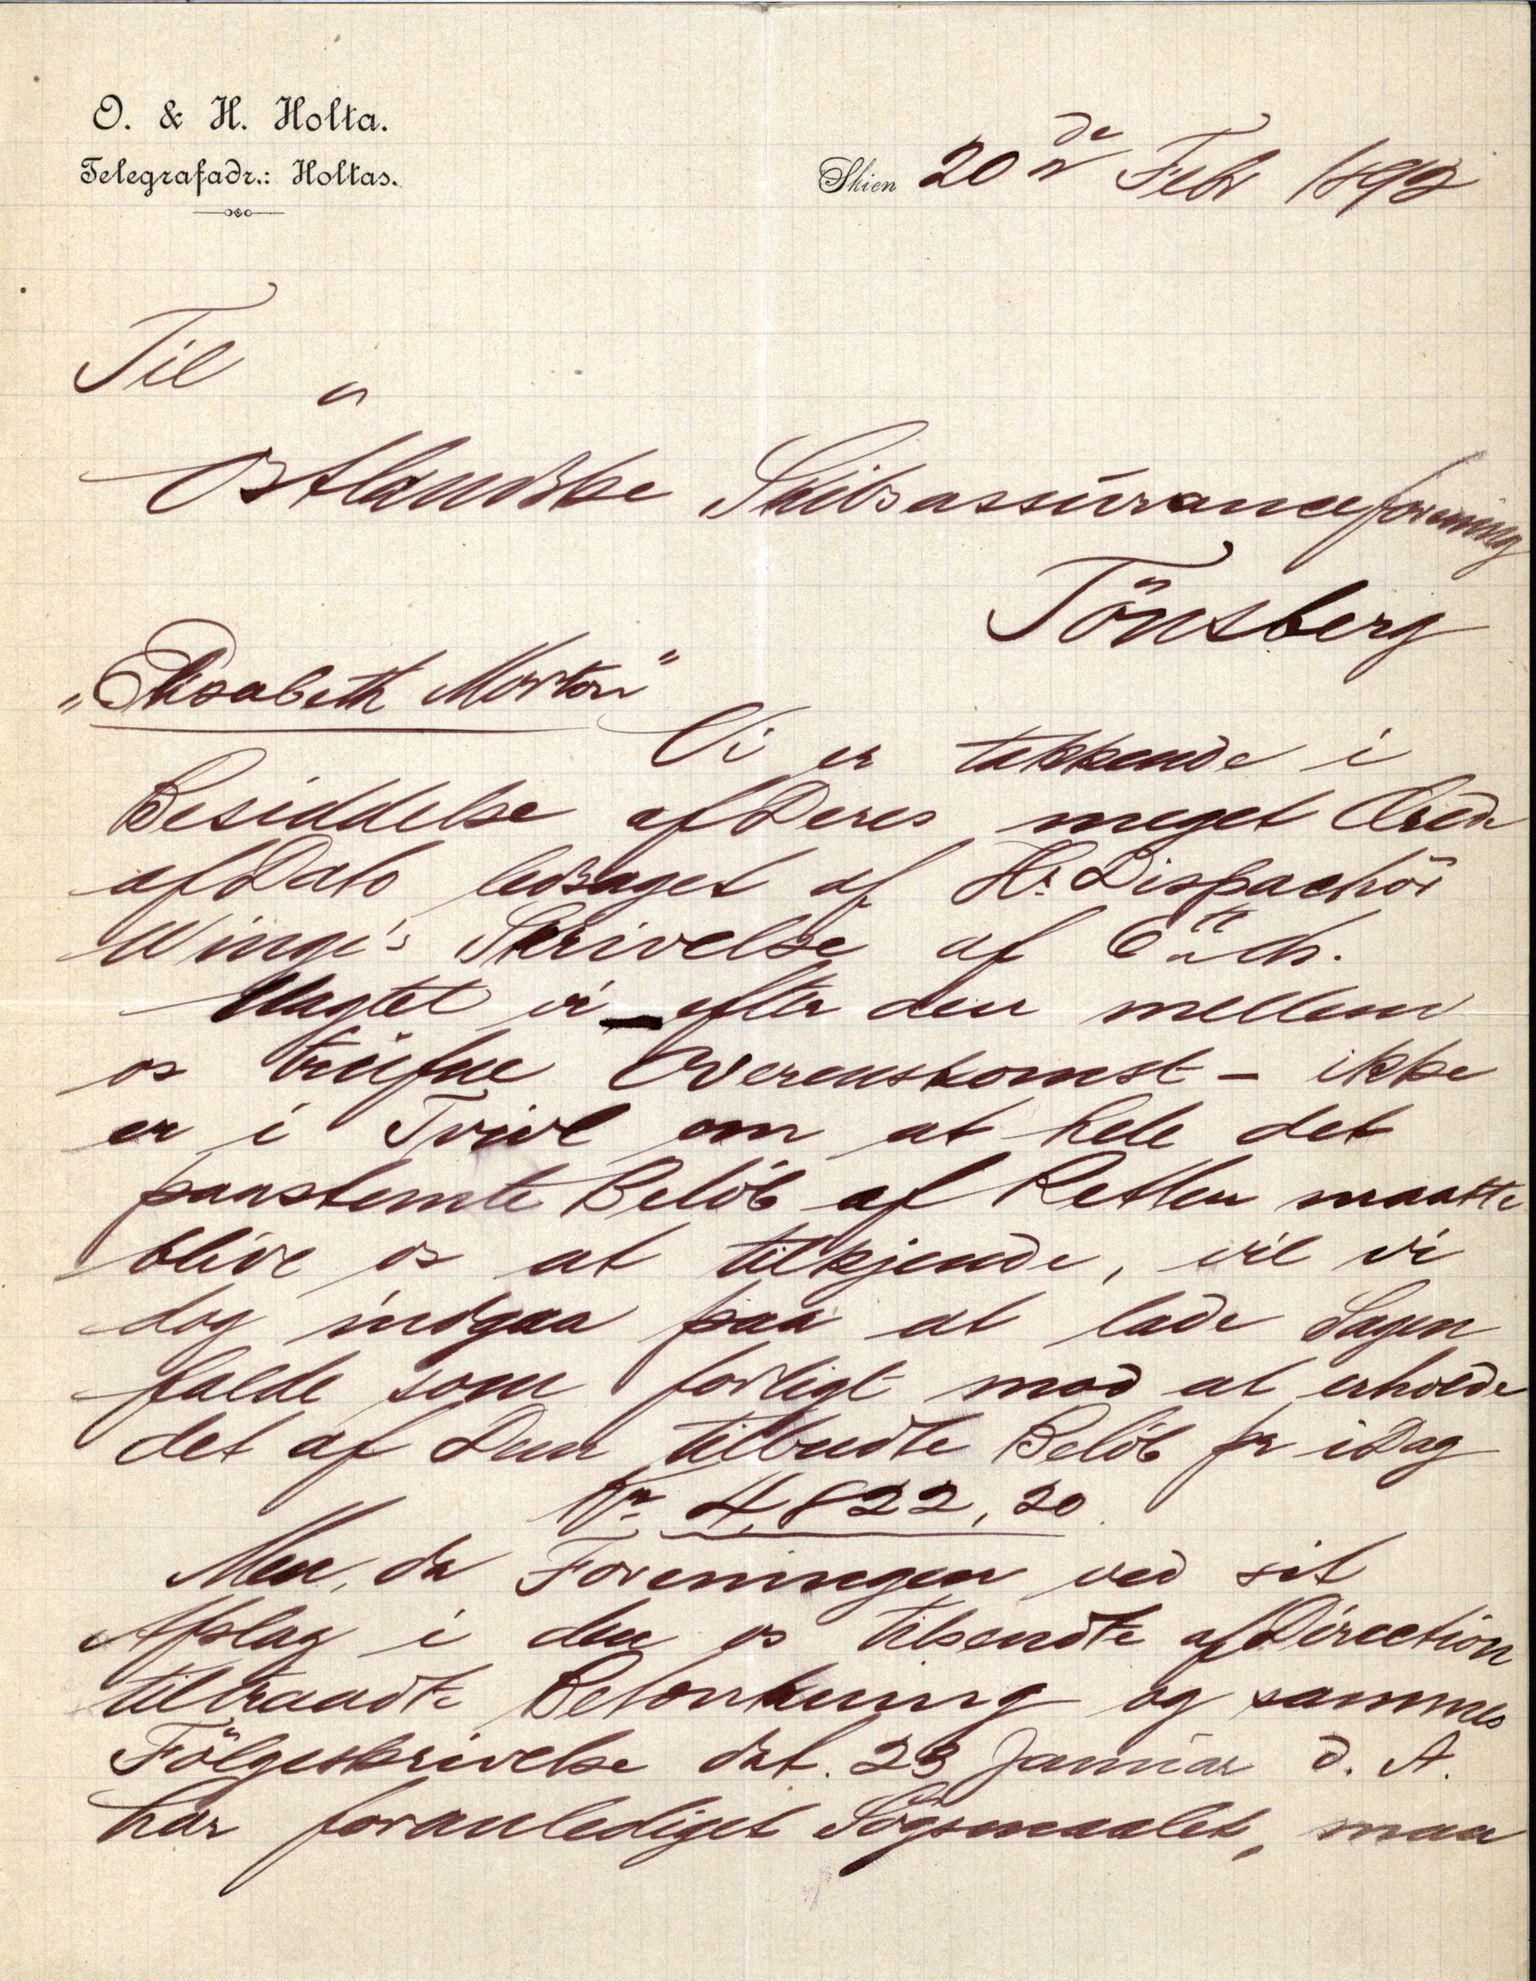 O. & H. Holta.
Telegrafadr.: Holtas.
Skien 20de Febr 1892
Til
Østlandske Skibsassuranceforening
Tönsberg
„Elisabeth Morton"
Vi er takkende i
Besiddelse af Deres meget Ærede
af Dato ledsaget af Hr. Dispachör
Winge's Skrivelse af 6te ds.
Uagtet vi – efter den mellem
os trufne Overenskomst – ikke
er i Tvivl om at hele det
paastemte Belöb af Retten maatte
blive os at tilkjende, vil vi
dog indgaa paa at lade Sagen
falde som forligt mod at erholde
det af Dem tilbudte Belöb pr idag
Kr. 4,822,20.
Men, da Foreningen ved sit
Afslag i den os tilsendte af Direction
tiltraadte Betænkning og sammes
Fölgeskrivelse dat. 23 Januar d. A.
har foranlediget Sögsmaalet, maa